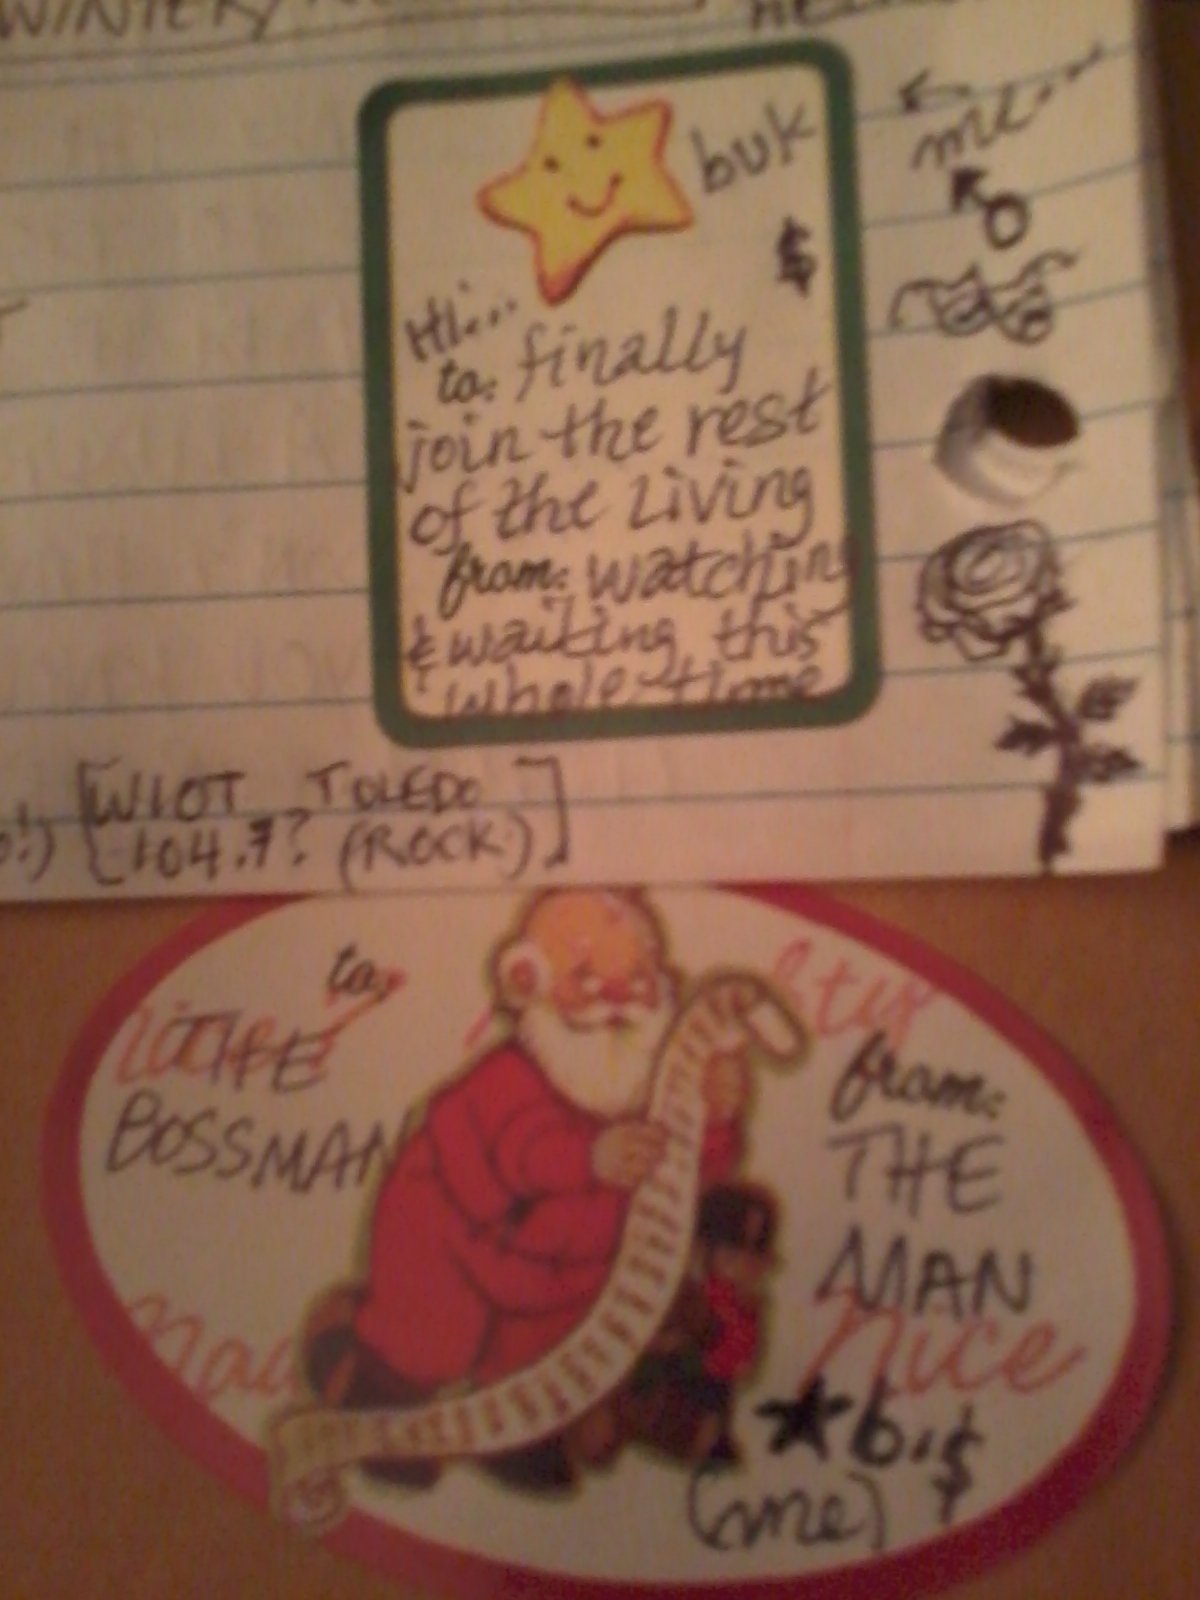 WINTERY
buk
me...
$
HI...
to: finally
join the rest
of the Living
from: watching
& waiting this
whole time
[WIOT TOLEDO
104.7? (ROCK)]
to:
THE
BOSSMAN
from:
THE
MAN
Nice
★b.$
(me)